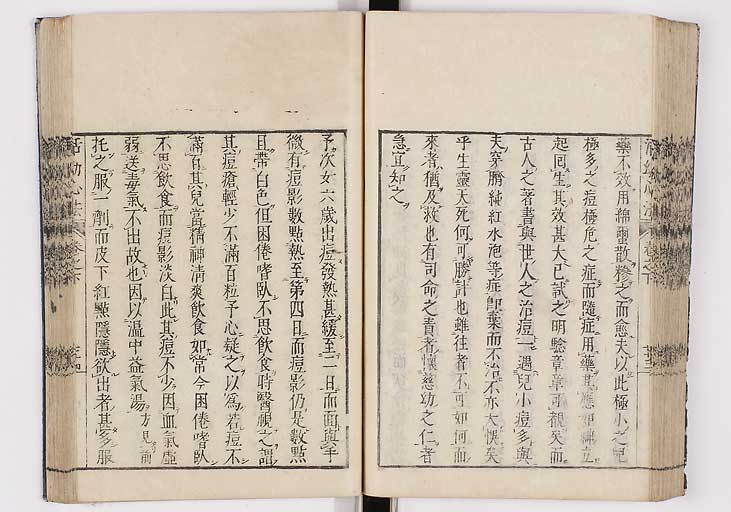 藥不效用綿蠒散糝之而愈夫以此極小之兒
極多之痘極危之症而隨症用藥其應如嚮立
起囘生其效甚大已試之明驗章章可觀矣而
古人之著書與世人之治痘一遇兒小痘多與
夫穿臍純紅水泡等症卽棄而不治不亦大悞矣
乎生靈夭死何可勝計也雖往者不可如何而
來者猶及救也有司命之責者懷慈幼之仁者
急宜知之
予次女六歲出痘發熱甚緩至二日而面與手
微有痘影數點熱至第四日而痘影仍是數點
且帶白色但困倦嗜臥不思飲食時醫視之謂
其痘瘡輕少不滿百粒予心疑之以爲若痘不
滿百其兒當精神清爽飲食如常今困倦嗜臥
不思飲食而痘影淡白此其痘不少因血氣虛
弱送毒氣不出故也因以溫中益氣湯方見前
托之服一劑而皮下紅點隱隱欲出者甚多服
活幼心法 卷之下